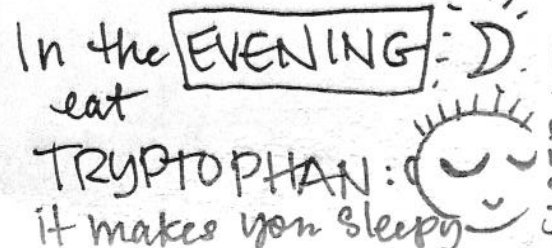 In the EVENING:
eat
TRYPTOPHAN:
it makes you sleepy